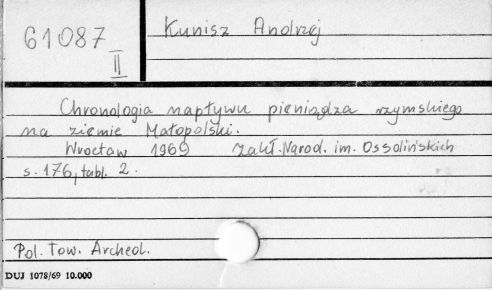 61087
II
Kunisz Andrzej
Chronologia napływu pieniądza rzymskiego
na ziemie Małopolski.
Wrocław 1969 Zakł. Narod. im. Ossolińskich
s. 176, tabl. 2.
Pol. Tow. Archeol.
DUJ 1078/69 10.000